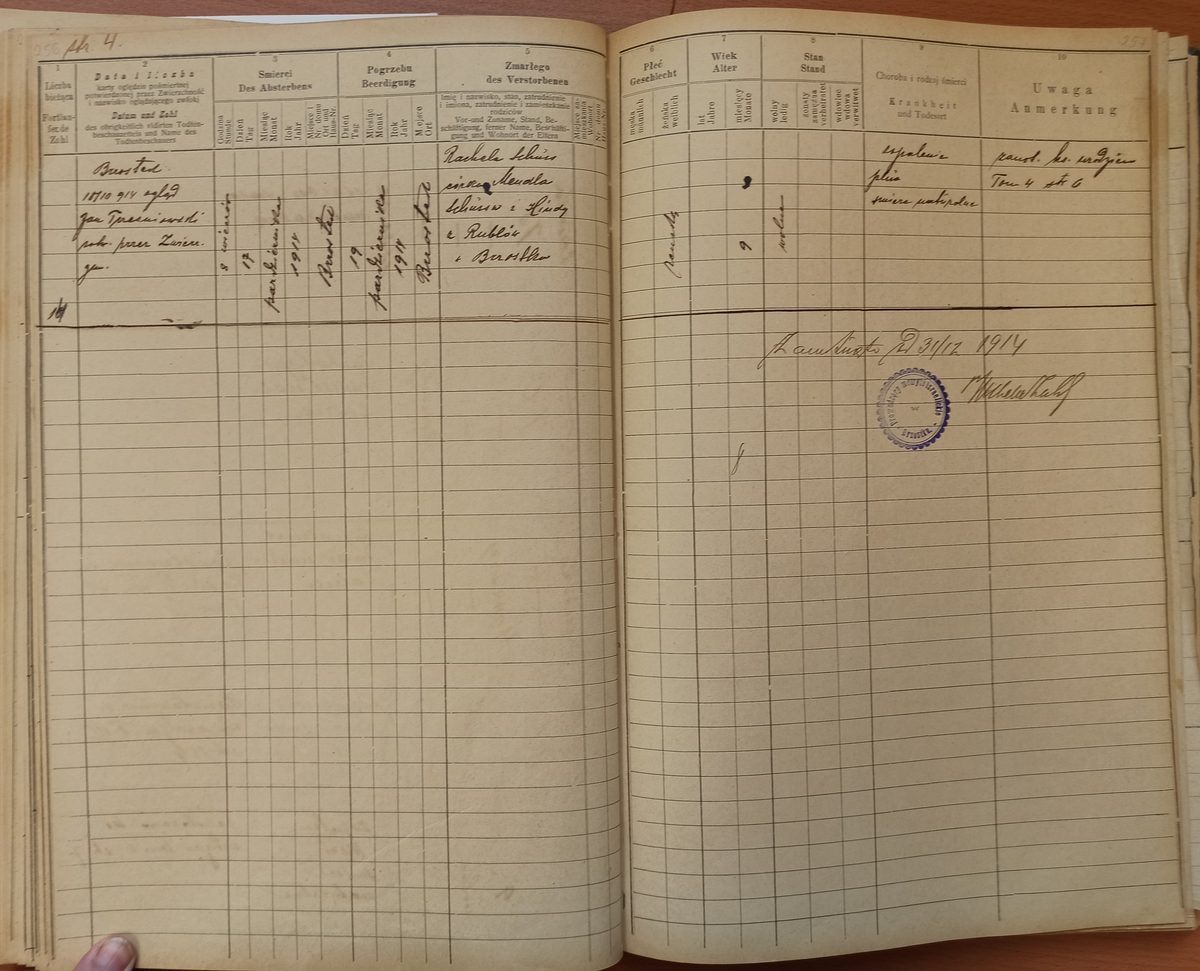 str. 4.
257
1
Liczba
bieżąca
Fortlau-
fende
Zahl
2
Data i liczba
karty oględzin pośmiertnej
potwierdzonej przez Zwierzchność
i nazwisko oglądającego zwłoki
Datum und Zahl
des obrigkeitlich vidirten Todten-
beschauzettels und Name des
Todtenbeschauers
3
Śmierci
Des Absterbens
Godzina
Stunde
Dzień
Tag
Miesiąc
Monat
Rok
Jahr
Miejsce i
Nr. domu
Ort und
Haus-Nr.
4
Pogrzebu
Beerdigung
Dzień
Tag
Miesiąc
Monat
Rok
Jahr
Miejsce
Ort
5
Zmarłego
des Verstorbenen
Imię i nazwisko, stan, zatrudnienie
i imiona, zatrudnienie i zamieszkanie
rodziców
Vor-und Zuname, Stand, Be-
schäftigung, ferner Name, Beschäfti-
gung und Wohnort der Eltern
6
Płeć
Geschlecht
męska
männlich
żeńska
weiblich
7
Wiek
Alter
lat
Jahre
miesięcy
Monate
8
Stan
Stand
wolny
ledig
żonaty
zamężna
verheiratet
wdowiec
wdowa
verwitwet
9
Choroba i rodzaj śmierci
Krankheit
und Todesart
10
Uwaga
Anmerkung
Brzostek
18/10 914 ogląd
Jan
potw. przez Zwierz.
gm.
8
17
października
1914
Brzostek
19
października
1914
Brzostek
Rachela Schüss
córka Mendla
Schüssa i Hindy
z Rublów
z Brzostku
żeńska
9
wolna
zapalenie
płuc
śmierć naturalna
zanot. ks. urodzin
Tom 4 str 6
Zamknięto d 31/12 1914